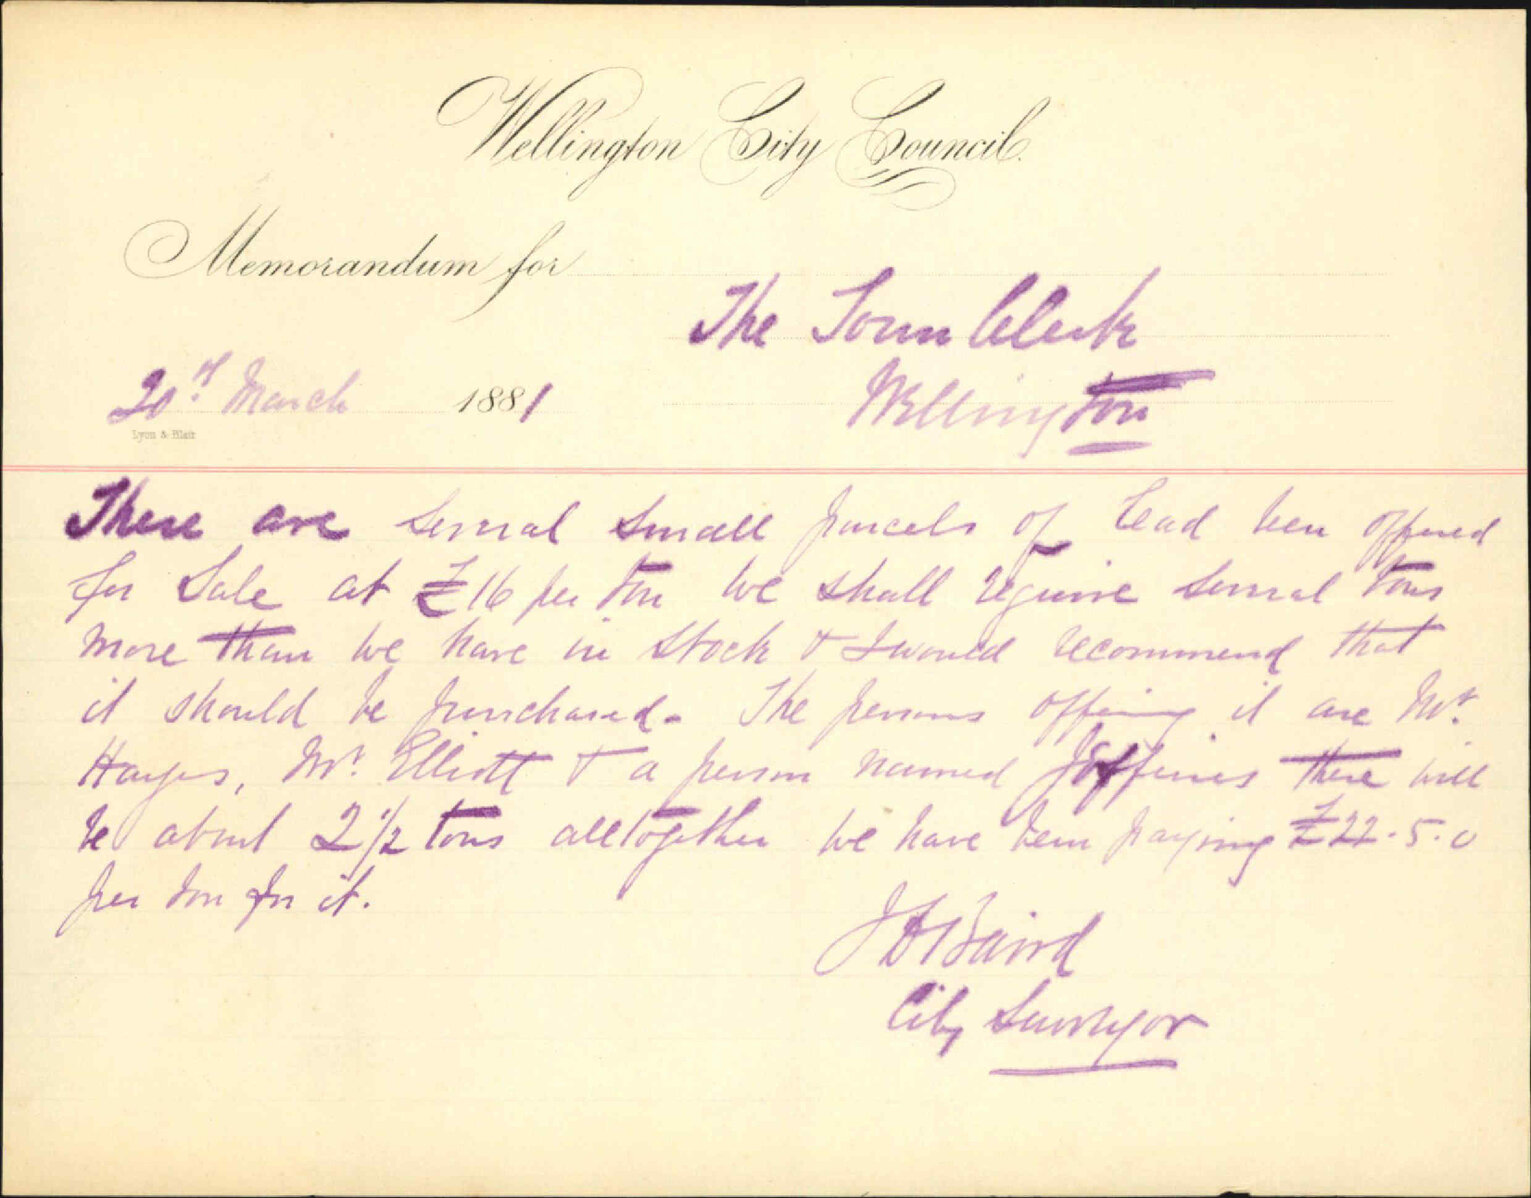 Wellington City Council.
Memorandum for
The Town Clerk
20th March 1881
Wellington
Lyon & Blair
There are several small parcels of lead been offered
for Sale at £16 per ton We shall require several tons
more than we have in stock & I would recommend that
it should be purchased. The persons offering it are Mr.
Hayes, Mr. Elliott & a person named Jeffries there will
be about 2 1/2 tons alltogether we have been paying £22.5.0
per ton for it.
J D Baird
City Surveyor